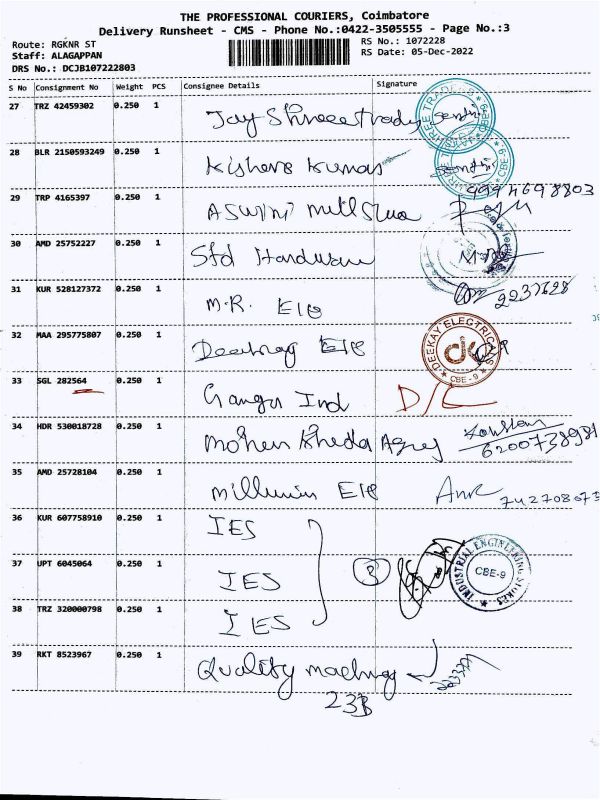 THE PROFESSIONAL COURIERS, Coimbatore
Delivery Runsheet - CMS - Phone No.:0422-3505555 - Page No.:3
Route: RGKNR ST RS No.: 1072228
Staff: ALAGAPPAN RS Date: 05-Dec-2022
DRS No.: DCJB107222803
S No Consignment No Weight PCS Consignee Details Signature
27 TRZ 42459302 0.250 1 Jay
28 BLR 2150593249 0.250 1 Kishore Kumar
29 TRP 4165397 0.250 1 Aswini mill 9994698803
30 AMD 25752227 0.250 1 Std Hardware
31 KUR 528127372 0.250 1 M.R. Ele
32 MAA 295775807 0.250 1 Deekay Ele
DEEKAY ELECTRICALS
dk
CBE-9
33 SGL 282564 0.250 1 Ganga Ind D/C
34 HDR 530018728 0.250 1 mohen Kheda 6200738981
35 AMD 25728104 0.250 1 Ele
36 KUR 607758910 0.250 1 IES
37 UPT 6045064 0.250 1 IES 3
INDUSTRIAL ENGINEERING STORES
CBE-9
38 TRZ 320000798 0.250 1 IES
39 RKT 8523967 0.250 1 Quality